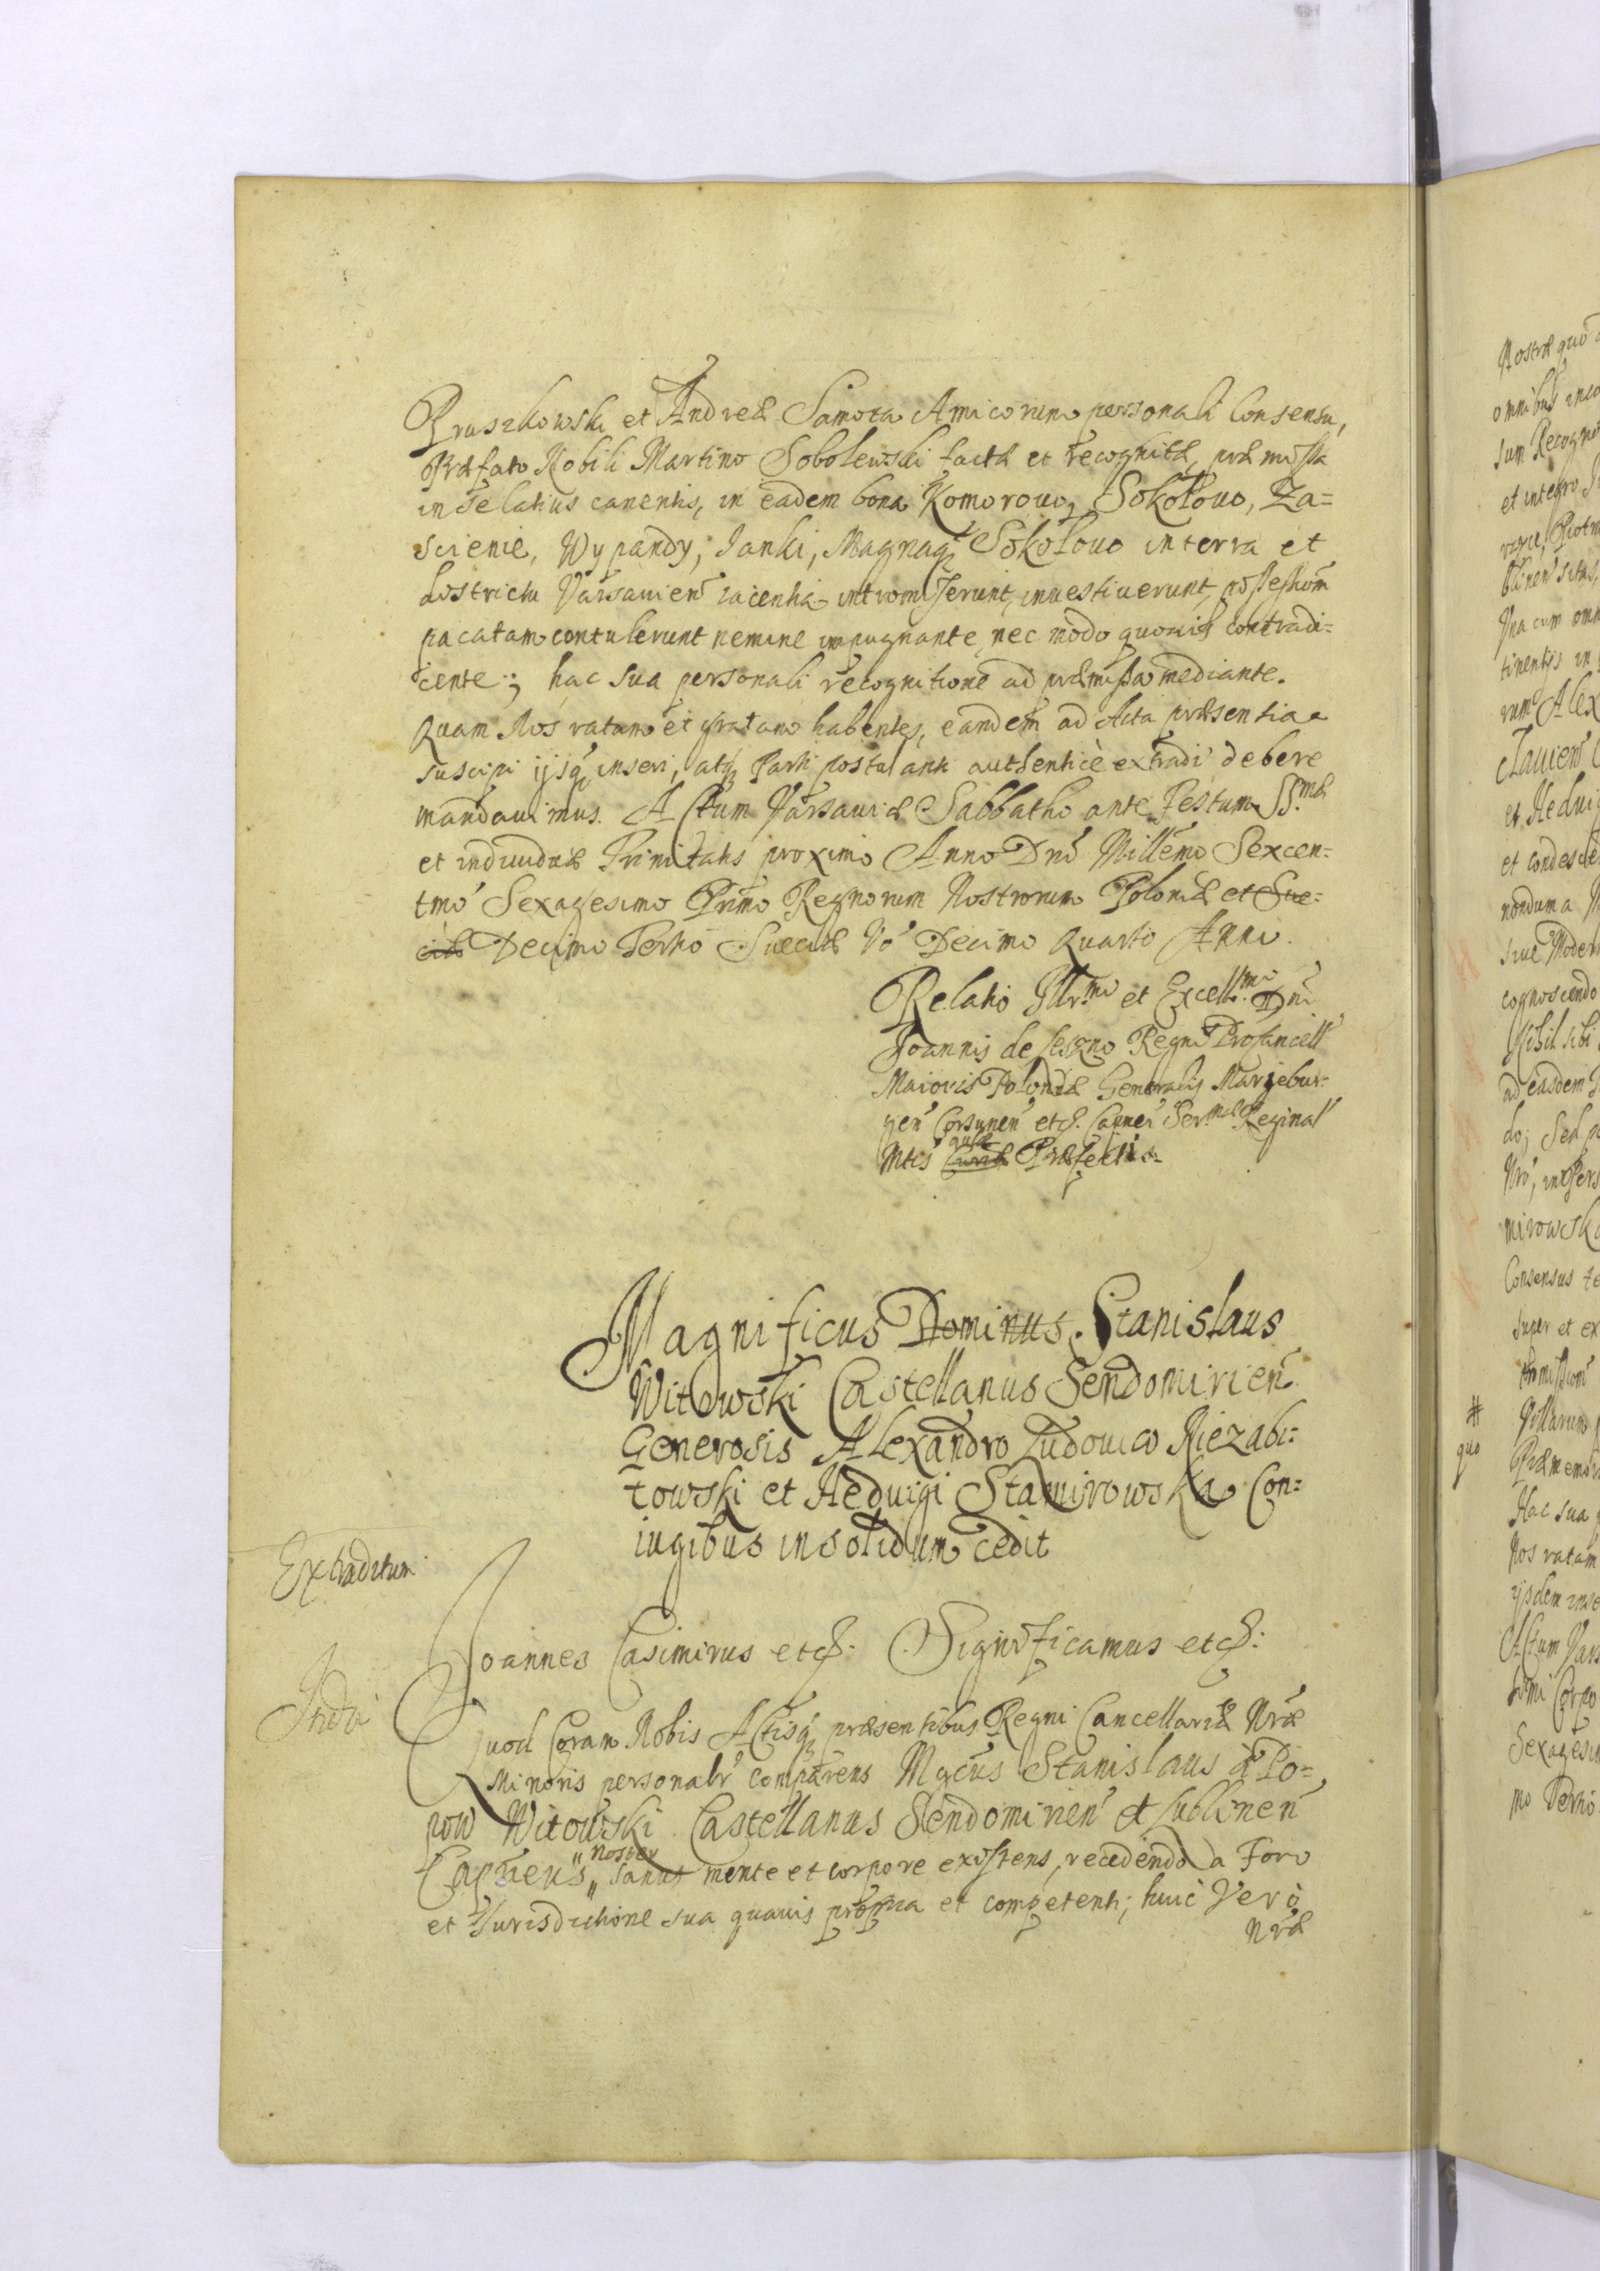 Pruszkowski et Andreæ Samota Amicorum personali Consensu,
Præfato Nobili Martino Sobolewski factæ et recognitæ, præmissa
in se latius canentis, in eadem bona Komorowo, Sokołowo, Za=
scienie, Wypandy, Janki, Magnaq Sokołowo in terra et
districtu Varsavien iacentia intromiserunt, investiverunt, possessionem
pacatam contulerunt nemine impugnante, nec modo quovis contradi=
cente; hac sua personali recognitione ad præmissa mediante.
Quam Nos ratam et gratam habentes, eandem ad Acta præsentia
suscipi ijsq inseri, atq Parti postulanti authenticè extradi debere
mandavimus. Actum Varsaviæ Sabbatho ante Festum SSmæ
et individuæ Trinitatis proximo Anno Dni Millemo Sexcen=
tmo Sexagesimo Primo Regnorum Nostrorum Poloniæ et Sue=
ciæ Decimo Tertio Sueciæ Vo Decimo Quarto Anno.
Relatio Illrmi et Excellmi Dni
Joannis de Leszno Regni Procancell
Maioris Poloniæ Generalis Mariæbur=
gen Corsunen etc. Capnei Sermæ Reginal
Mtis Curiæ aulæ Præfecti
Magnificus Dominus Stanislaus
Witowski Castellanus Sendomirien
Generosis Alexandro Ludovico Niezabi=
towski et Hedvigi Stamirowska Con=
iugibus in solidum cedit
Extraditum
Joannes Casimirus etc: Significamus etc:
Quod Coram Nobis Actisq præsentibus Regni Cancellariæ Nræ
Minoris personalr comparens Mgcus Stanislaus à Po=
pow Witowski Castellanus Sendomirien et Lublinen
Capneus noster sanus mente et corpore existens, recedendo à Foro
et Jurisdictione sua quavis propria et competenti; huic Verò
Nræ
Nostræ quo
omnibus
sum Recogn
et integro
blinen sitis,
Una cum omn
tinentijs in
rum Alex
et Hedvig
et condesce
nondum a
sive Modern
cognoscendo
Nihil sibi
ad easdem
do; Sed
mirowska
Consensus
super et ex
#
quo
Villarum
Præmem
Hac sua
Nos ratam
ijsdem inse
Actum Vars
Sexagesim
mo Tertio